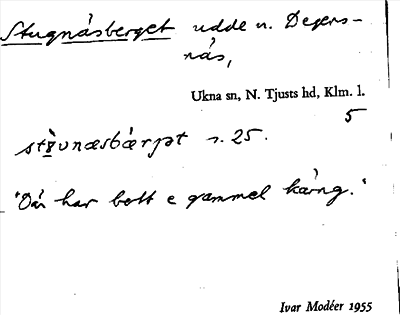 Stugnäsberget udde n. Degers-
näs,
Ukna sn, N. Tjusts hd, Klm. l.
5
n. 25.
"Dä har bott e gammel käring."
Ivar Modéer 1955